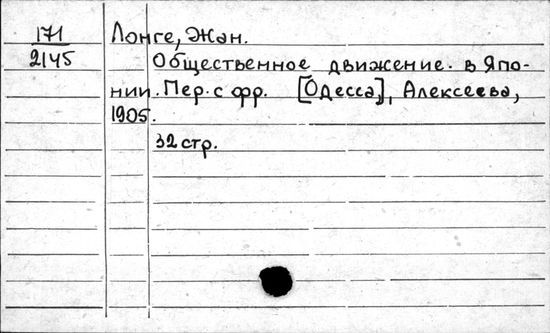 171
2145
Лонге, Жан.
Общественное движение в Япо-
нии. Пер. с фр. [Одесса], Алексеева,
1905.
32 стр.